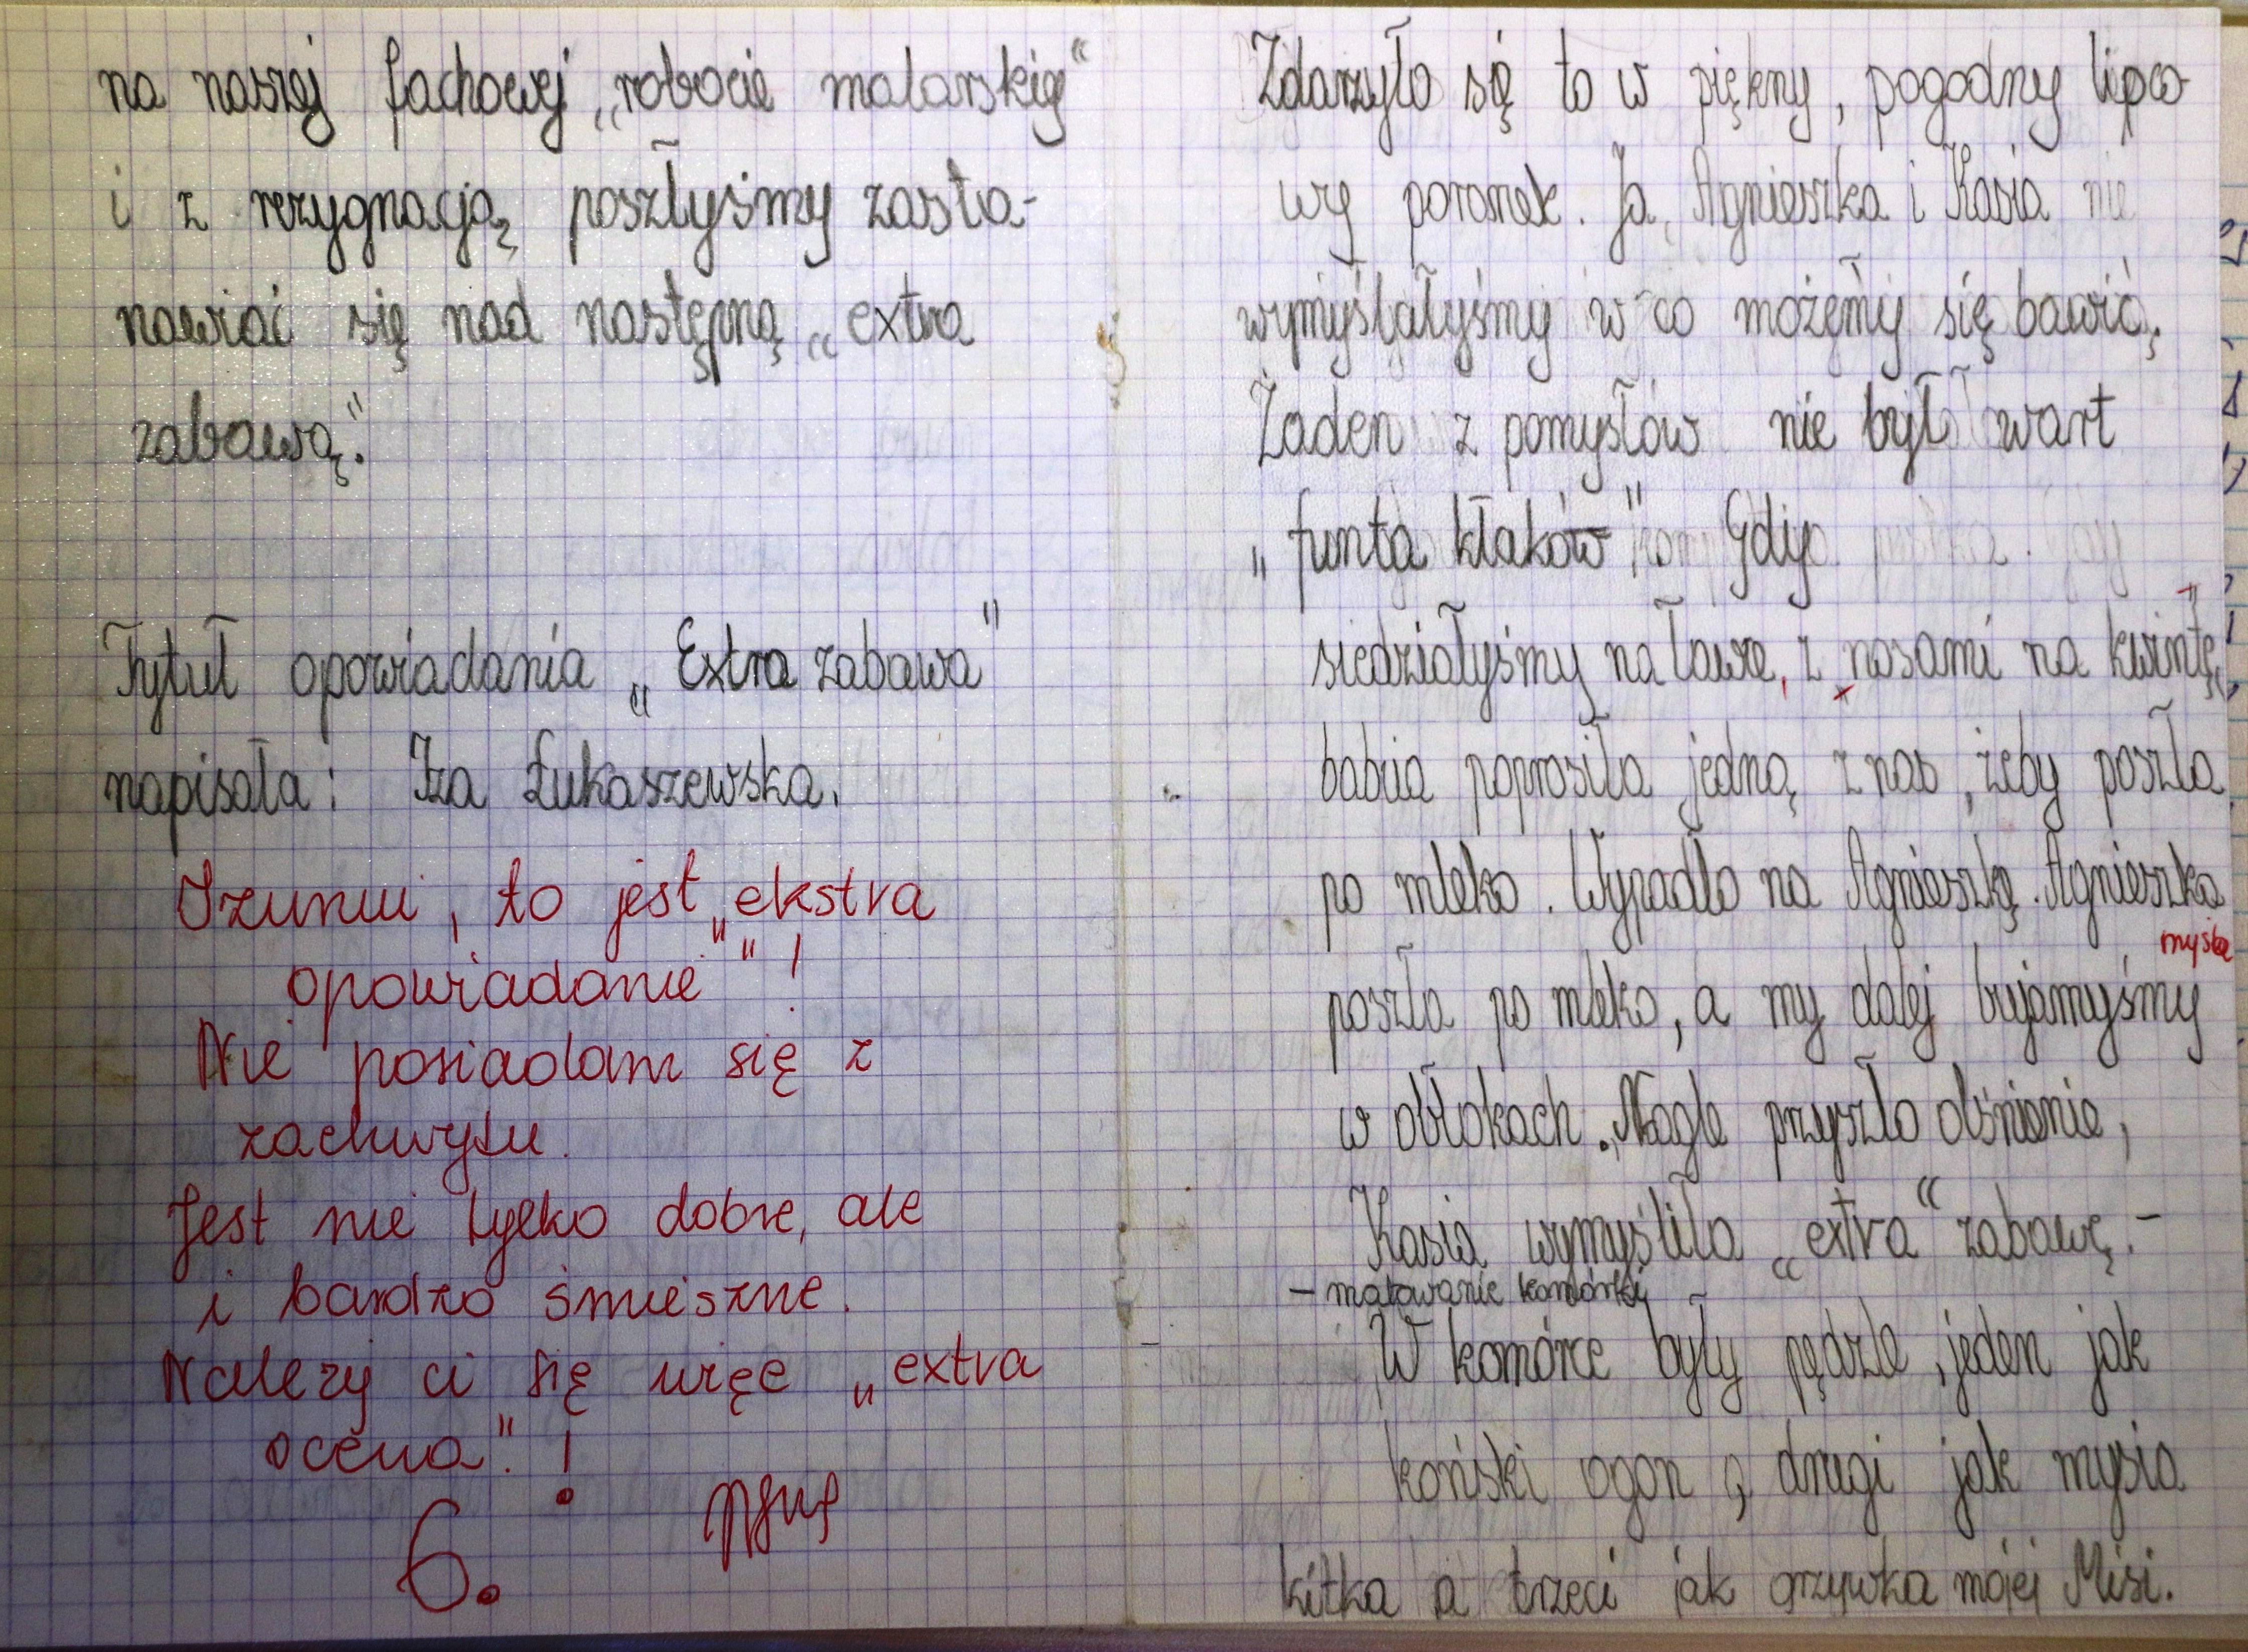 na naszej fachowej „robocie malarskiej"
i z rezygnacją poszłyśmy zasta-
nawiać się nad następną „extra
zabawą."
Tytuł opowiadania „Extra zabawa"
napisała: Iza Łukaszewska.
Izuniu, to jest „ekstra
opowiadanie"!
Nie posiadam się z
zachwytu.
Jest nie tylko dobre, ale
i bardzo śmieszne.
Należy ci się więc „extra
ocena"!
6.
Zdarzyło się to w piękny, pogodny lipco
wy poranek. Ja, Agnieszka i Kasia
wymyślałyśmy w co możemy się bawić.
Żaden z pomysłów nie był wart
„funta kłaków" Gdy
siedziałyśmy na ławce, z „nosami na kwintę"
babcia poprosiła jedną z nas, żeby poszła
po mleko. Wypadło na Agnieszkę. Agnieszka
myślą
poszła po mleko, a my dalej bujamyśmy
w obłokach. Nagle przyszło olśnienie,
Kasia wymyśliła „extra" zabawę. -
- malowanie komórki
W komórce były pędzle, jeden jak
koński ogon, drugi jak mysia
kitka a trzeci jak grzywka mojej Misi.